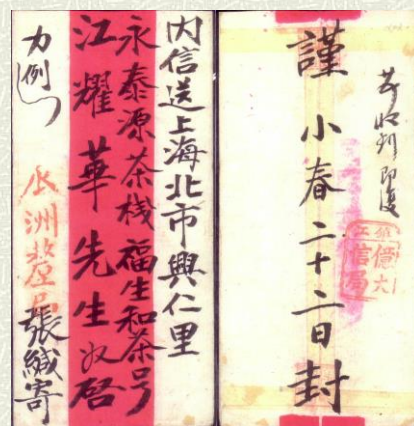 内信送上海北市興仁里
永泰源茶栈福生和茶号
江耀華先生啓
力例
洲
張緘寄
收到即復
謹小春二十二日封
億大
信局